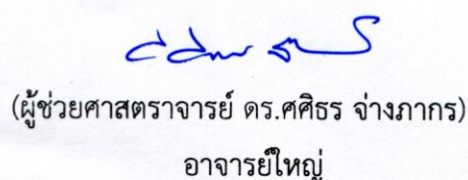 (ผู้ช่วยศาสตราจารย์ ดร.ศศิธร จ่างภากร)
อาจารย์ใหญ่